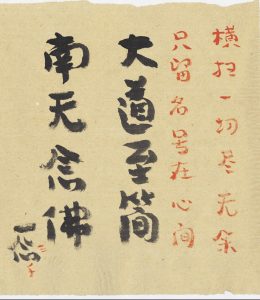 横扫一切尽无余
只留名号在心间
大道至简
南天信佛